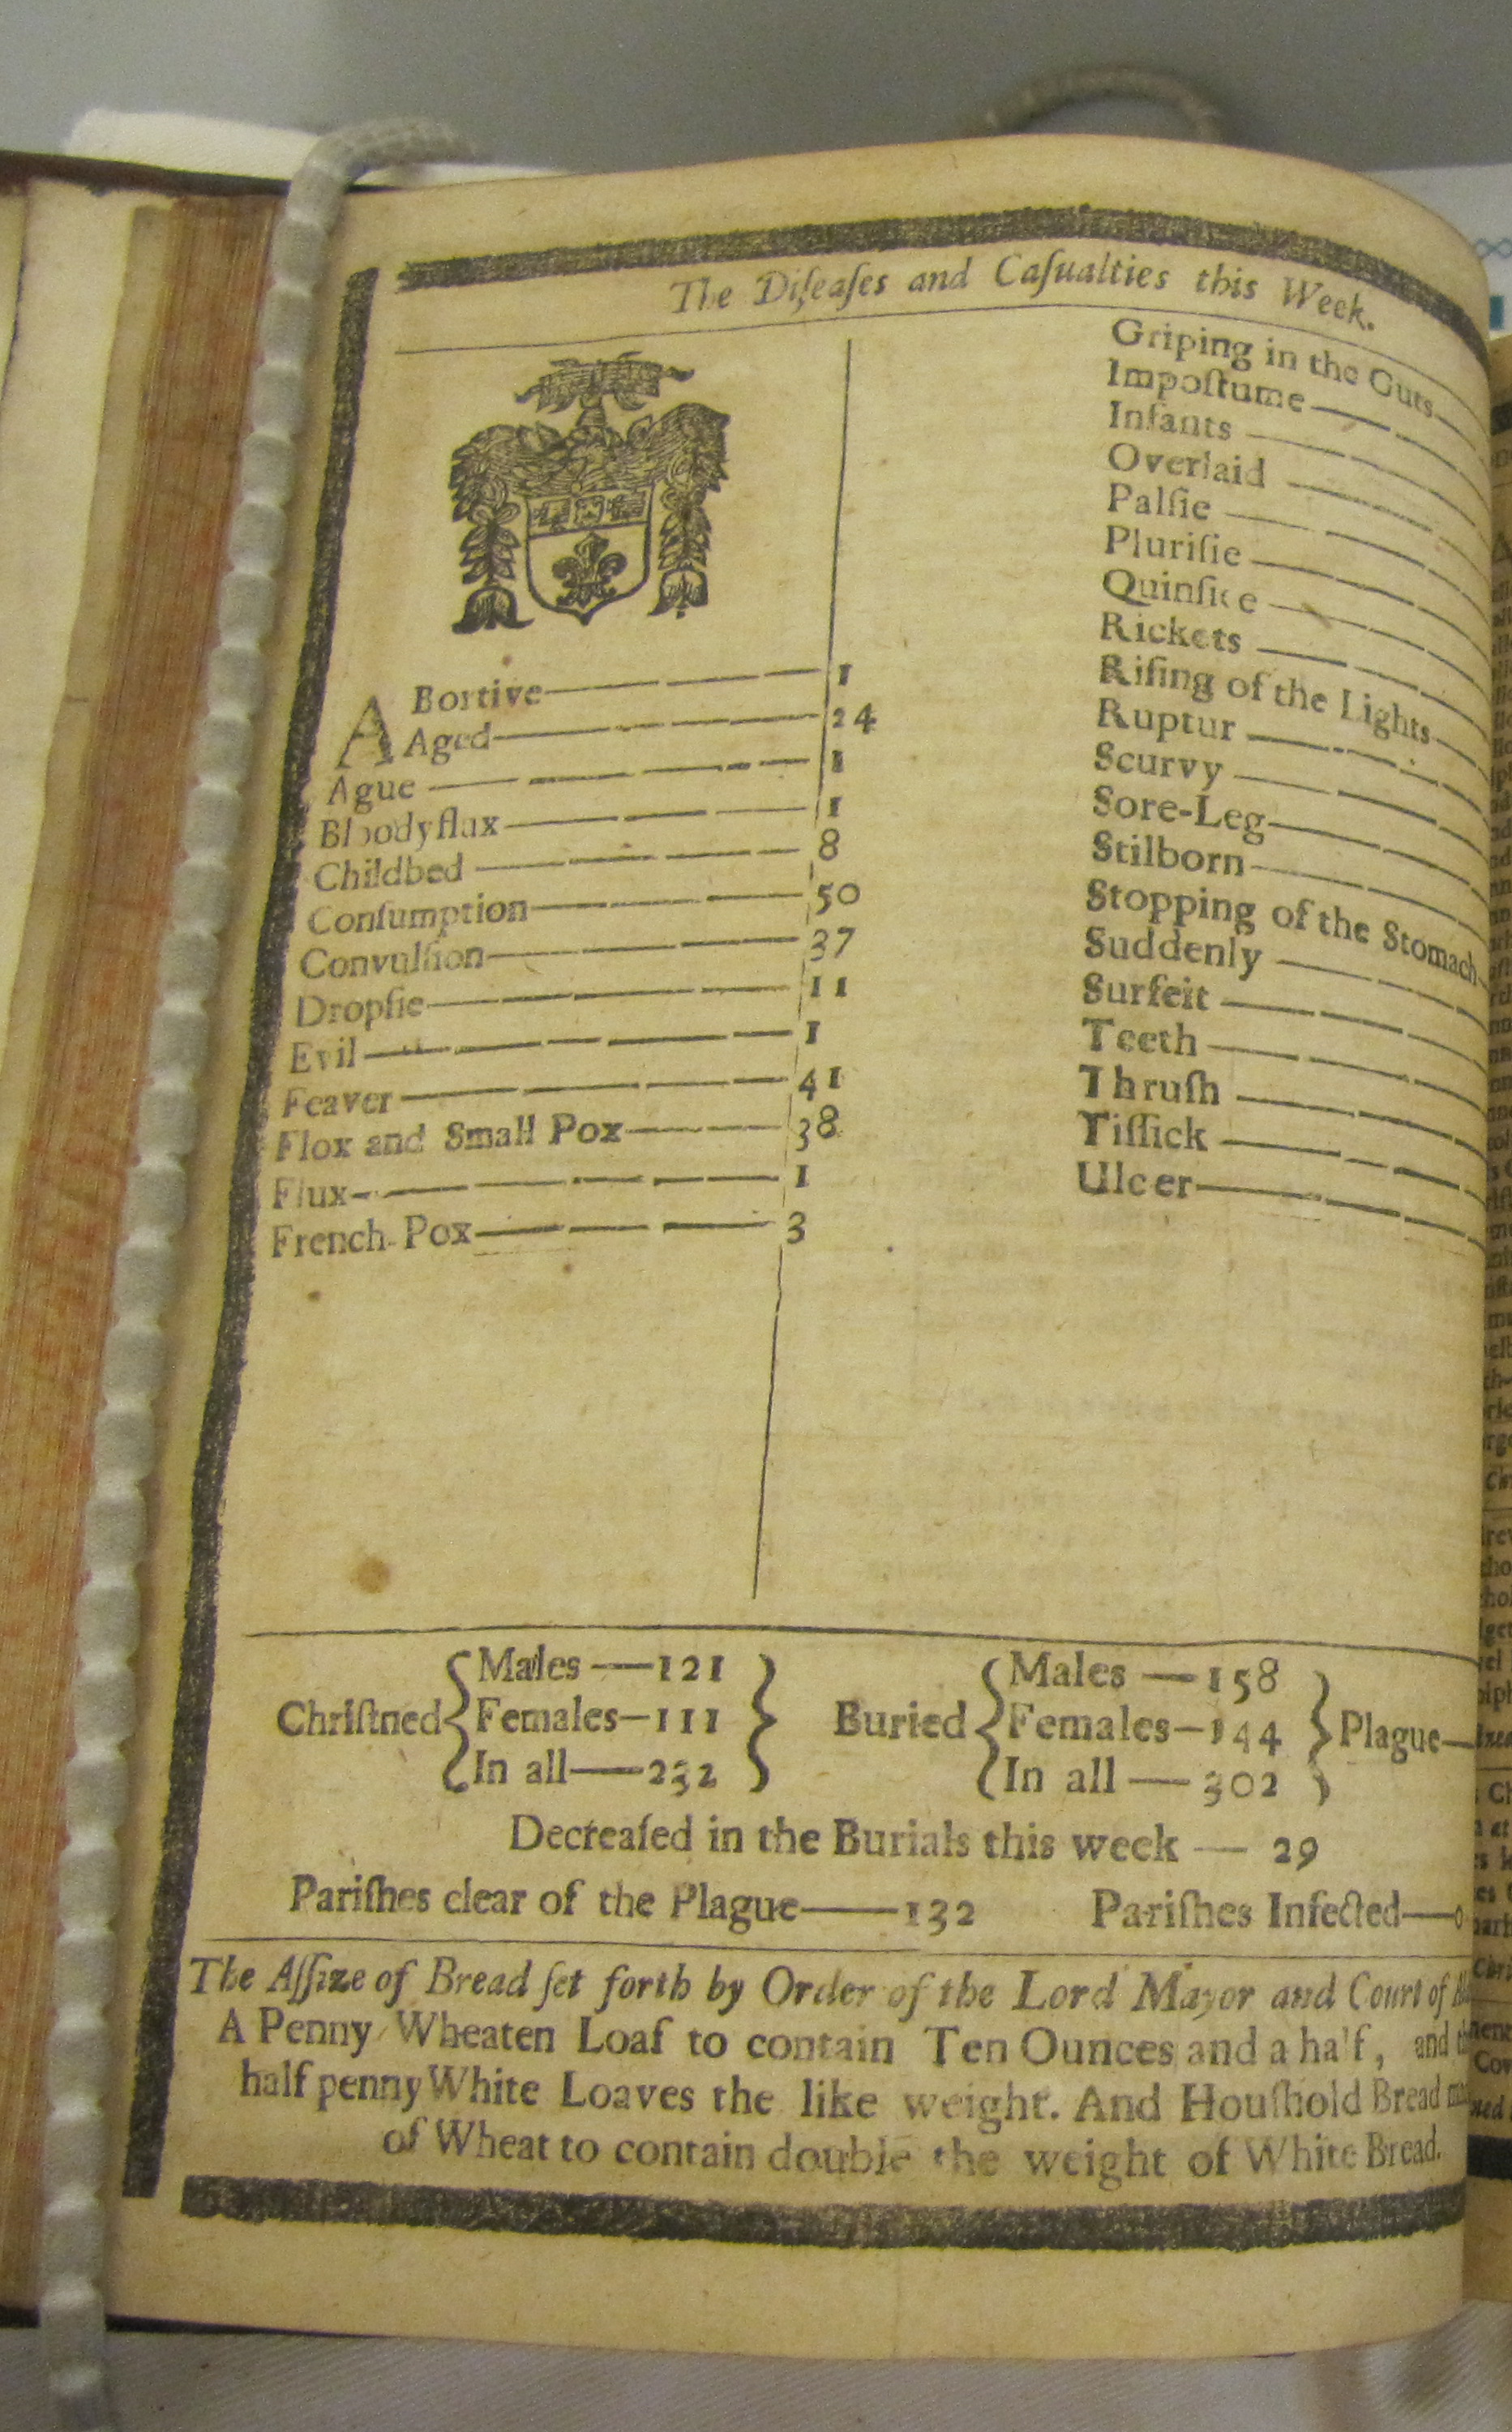 The Diſeaſes and Caſualties this Week.
ABortive 1
Aged 24
Ague 1
Bloodyflux 1
Childbed 8
Conſumption 50
Convulſion 37
Dropſie 11
Evil 1
Feaver 41
Flox and Small Pox 38
Flux 1
French-Pox 3
Griping in the Guts
Impoſtume
Infants
Overlaid
Palſie
Pluriſie
Quinſie
Rickets
Riſing of the Lights
Ruptur
Scurvy
Sore-Leg
Stilborn
Stopping of the Stomach
Suddenly
Surfeit
Teeth
Thruſh
Tiſſick
Ulcer
Chriſtned { Males — 121
Females — 111
In all — 232 }
Buried { Males — 158
Females — 144
In all — 302 } Plague —
Decreaſed in the Burials this week — 29
Pariſhes clear of the Plague — 132 Pariſhes Infected — 0
The Aſſize of Bread ſet forth by Order of the Lord Mayor and Court of
A Penny Wheaten Loaf to contain Ten Ounces and a half, and
half penny White Loaves the like weight. And Houſhold Bread
of Wheat to contain double the weight of White Bread.